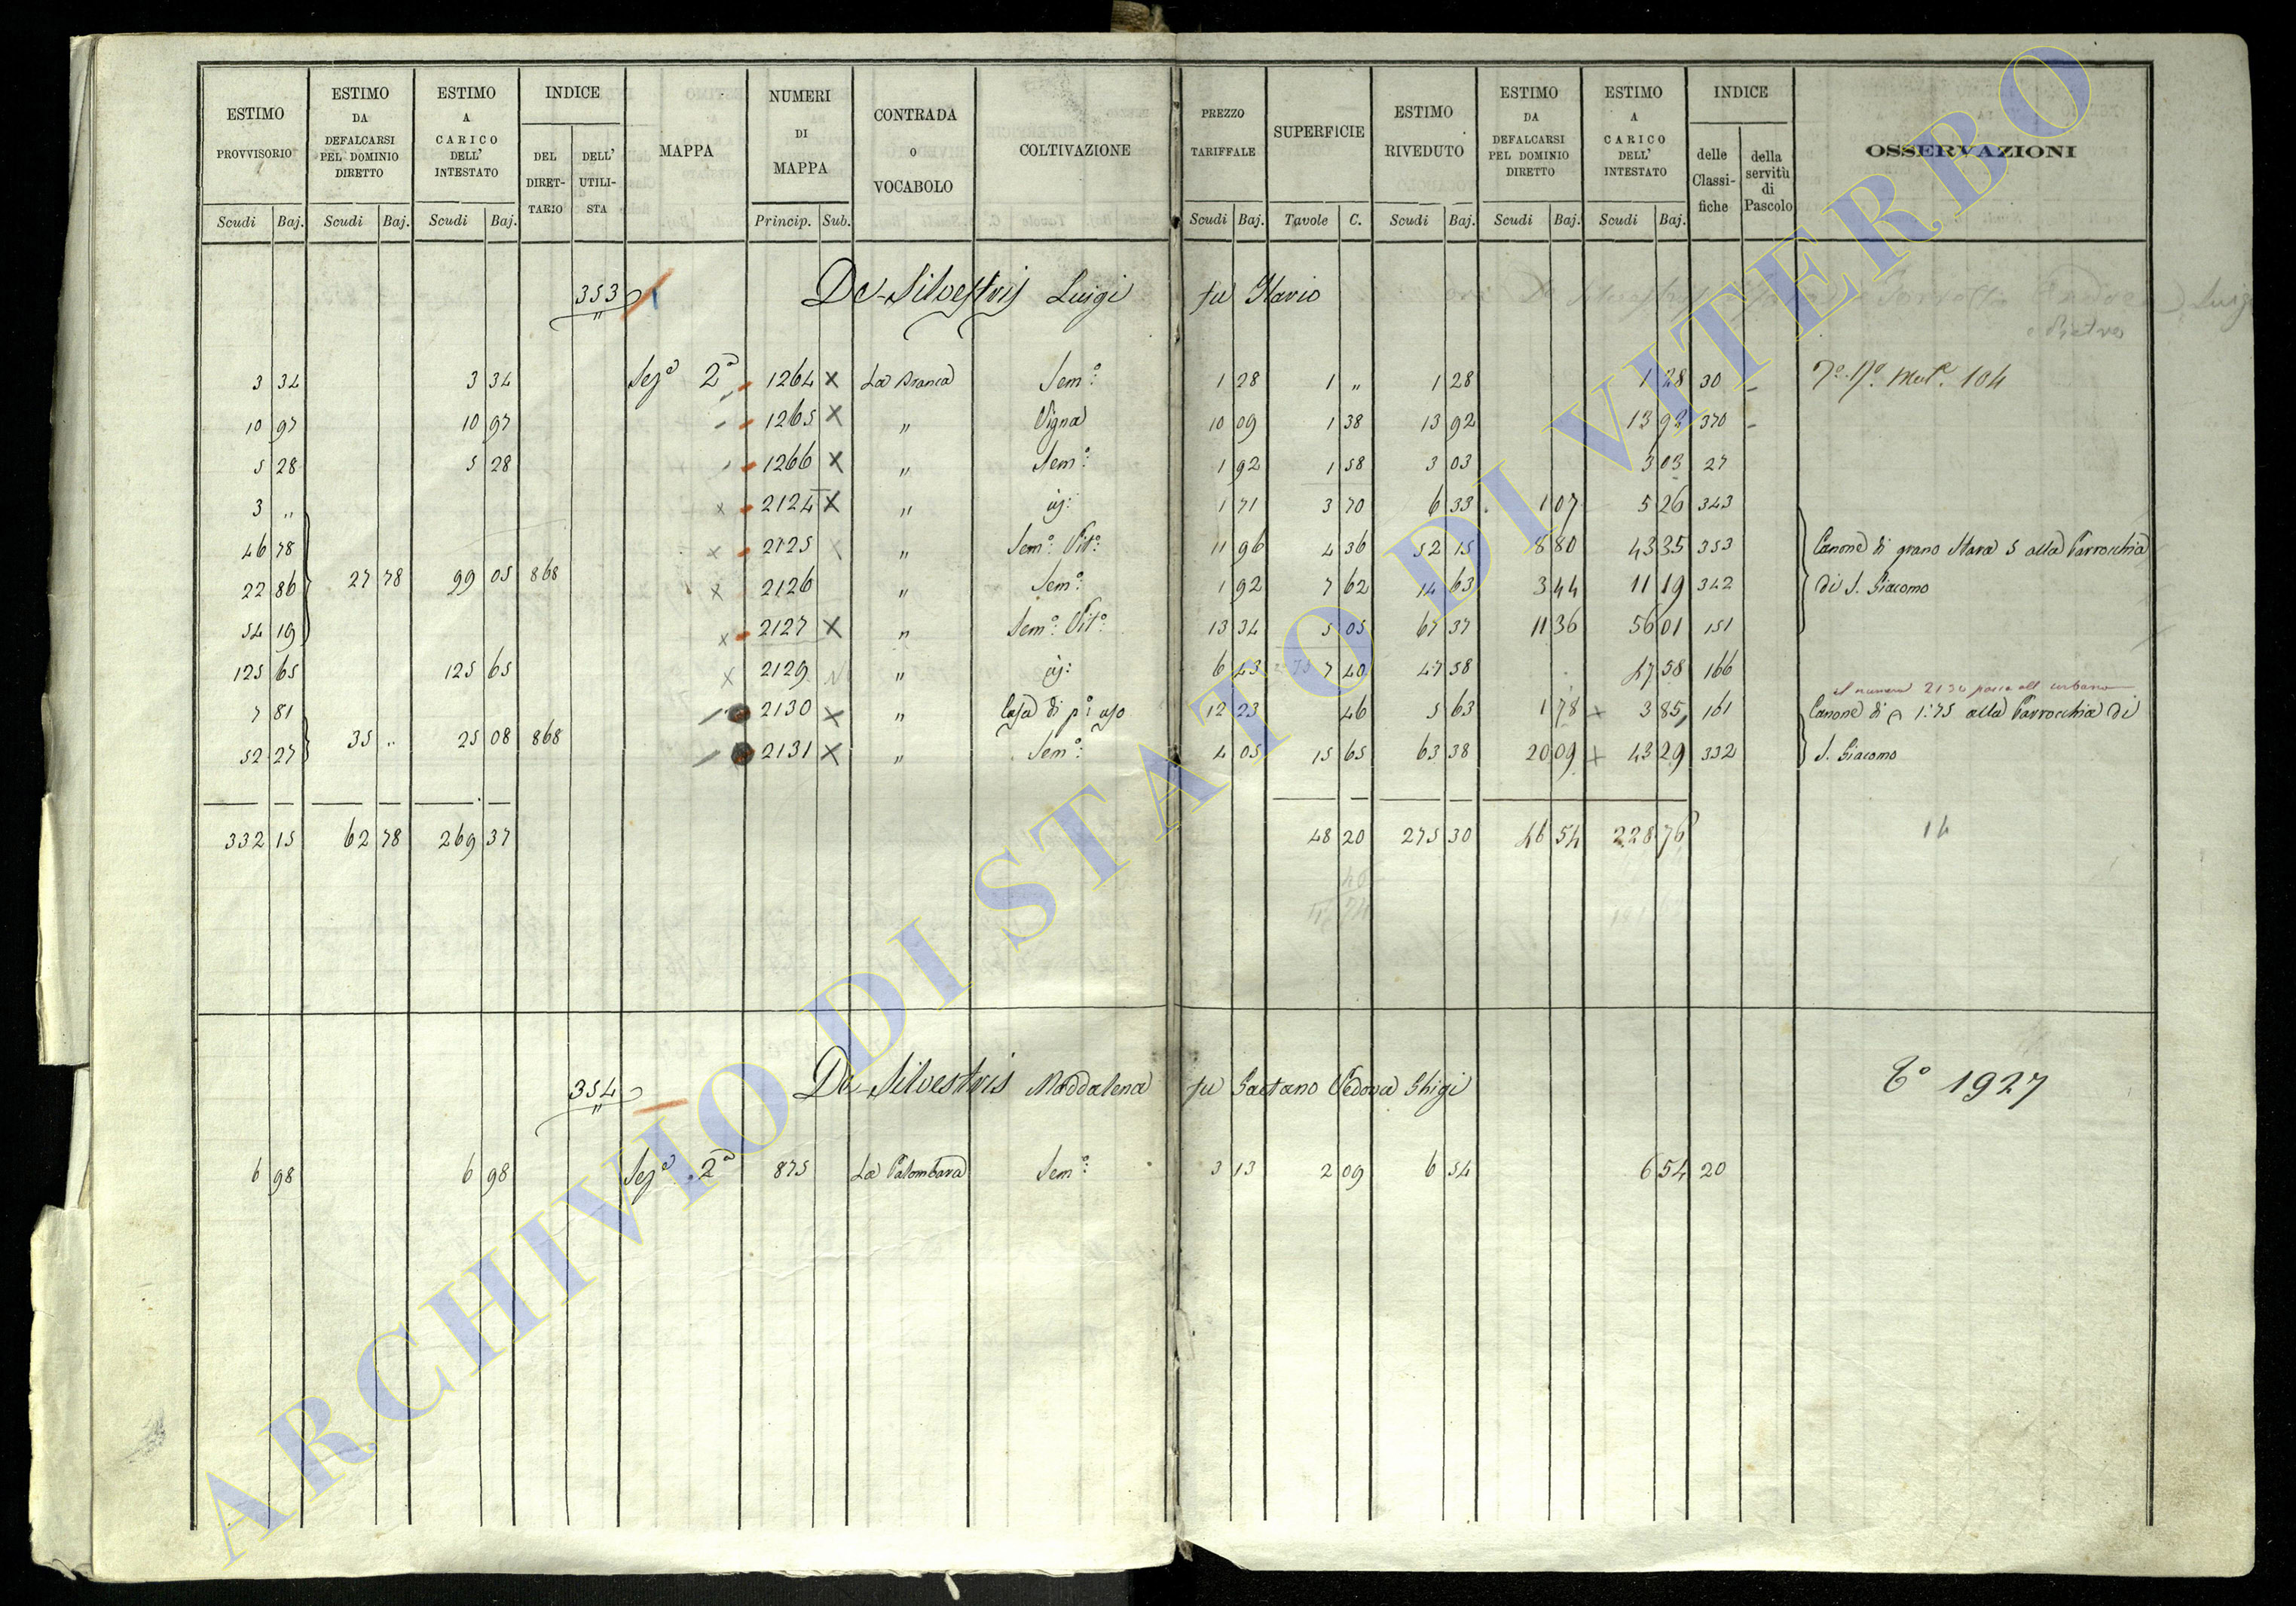 ESTIMO PROVVISORIO | ESTIMO DA DEFALCARSI PEL DOMINIO DIRETTO | ESTIMO A CARICO DELL' INTESTATO | INDICE | MAPPA | NUMERI DI MAPPA | CONTRADA O VOCABOLO | COLTIVAZIONE | PREZZO TARIFFALE | SUPERFICIE | ESTIMO RIVEDUTO | ESTIMO DA DEFALCARSI PEL DOMINIO DIRETTO | ESTIMO A CARICO DELL' INTESTATO | INDICE | OSSERVAZIONI
DEL DIRETTARIO | DELL' UTILISTA | delle Classifiche | della servitù di Pascolo
Scudi Baj. | Scudi Baj. | Scudi Baj. | Princip. Sub. | Scudi Baj. | Tavole C. | Scudi Baj. | Scudi Baj. | Scudi Baj.
353 De-Silvestris Luigi fu Ilario
3 34 | 3 34 | Sezᵃ 2ᵃ | 1264 X | La Branca | Semᵒ: | 1 28 | 1 „ | 1 28 | 1 28 | 30 | 104
10 97 | 10 97 | 1265 X | „ | Vigna | 10 09 | 1 38 | 13 92 | 13 92 | 370
5 28 | 5 28 | 1266 X | „ | Semᵒ: | 1 92 | 1 58 | 3 03 | 3 03 | 27
3 „ | 2124 X | „ | 1 71 | 3 70 | 6 33 | 1 07 | 5 26 | 343
46 78 | 2125 | „ | Semᵒ: Vitᵒ: | 11 96 | 4 36 | 52 15 | 8 80 | 43 35 | 353 | Canone di grano Stara 5 alla Parrocchia
22 86 | 27 78 | 99 05 | 868 | X | 2126 | „ | Semᵒ: | 1 92 | 7 62 | 14 63 | 3 44 | 11 19 | 342 | di S. Giacomo
54 19 | X | 2127 X | „ | Semᵒ: Vitᵒ: | 13 34 | 5 05 | 67 37 | 11 36 | 56 01 | 151
125 65 | 125 65 | X | 2129 | „ | 6 43 | 7 40 | 47 58 | 47 58 | 166
Il numero 2130 passa all' urbano
7 81 | 2130 X | „ | Casa di pᵒ: uso | 12 23 | 46 | 5 63 | 1 78 | 3 85 | 161 | Canone di 1:75 alla Parrocchia di
52 27 | 35 „ | 25 08 | 868 | 2131 X | „ | Semᵒ: | 4 05 | 15 65 | 63 38 | 20 09 | 43 29 | 332 | S. Giacomo
332 15 | 62 78 | 269 37 | 48 20 | 275 30 | 46 54 | 228 76 | 14
354 De-Silvestris Maddalena fu Gaetano Vedova Ghigi | 1927
6 98 | 6 98 | Sezᵃ 2ᵃ | 875 | La Palombara | Semᵒ: | 3 13 | 2 09 | 6 54 | 6 54 | 20
ARCHIVIO DI STATO DI VITERBO